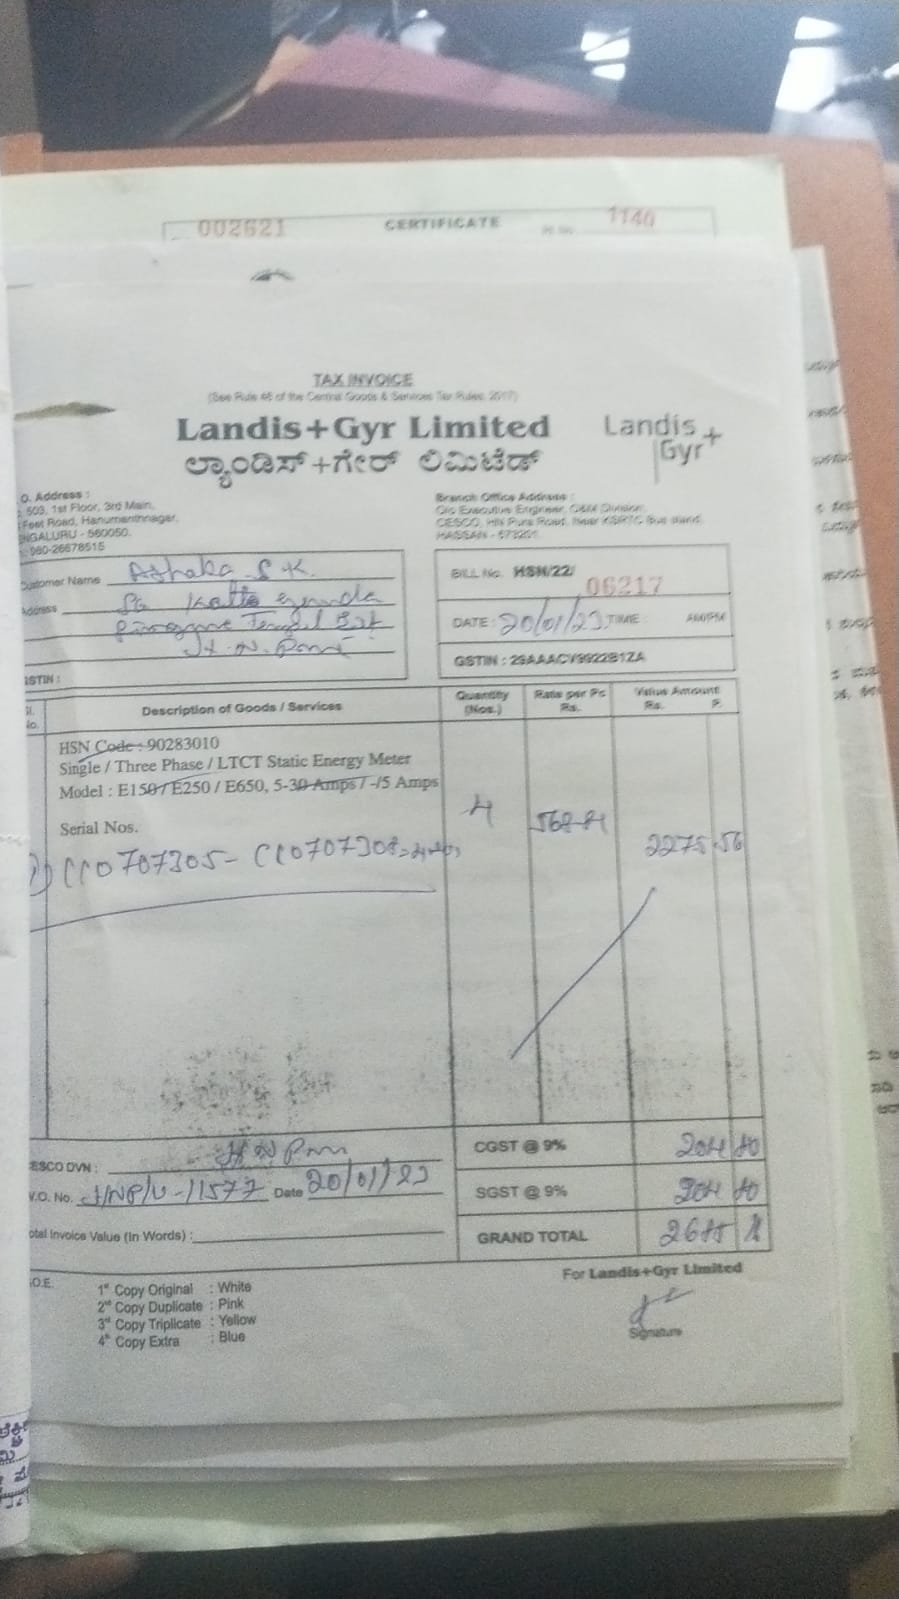 002621 CERTIFICATE 1140
TAX INVOICE
(See Rule 46 of the Central Goods & Services Tax Rules, 2017)
Landis+Gyr Limited
ಲ್ಯಾಂಡಿಸ್+ಗೇರ್ ಲಿಮಿಟೆಡ್
Landis
Gyr+
O. Address :
503, 1st Floor, 3rd Main,
Feet Road, Hanumanthnagar,
NGALURU - 560050.
: 080-26678515
Branch Office Address :
O/o Executive Engineer, O&M Division,
CESCO, HN Pura Road, Near KSRTC Bus stand,
HASSAN - 573201.
Customer Name Ashoka S K.
Address S/o Katte gowda
H.N. Pura
STIN :
BILL No. HSN/22/ 06217
DATE : 20/01/23 TIME : AM/PM
GSTIN : 29AAACV9922B1ZA
Sl. No. Description of Goods / Services Quantity (Nos.) Rate per Pc Rs. Value Amount Rs. P.
HSN Code : 90283010
Single / Three Phase / LTCT Static Energy Meter
Model : E150 / E250 / E650, 5-30 Amps / -/5 Amps
Serial Nos.
4 568-89 2275.56
1) CC0707305- CC0707308
ESCO DVN : H N Pura
W.O. No. HNP/U-11577 Date 20/01/23
otal Invoice Value (In Words) :
CGST @ 9% 204 80
SGST @ 9% 204 80
GRAND TOTAL 2685
.O.E.
1st Copy Original : White
2nd Copy Duplicate : Pink
3rd Copy Triplicate : Yellow
4th Copy Extra : Blue
For Landis+Gyr Limited
Signature